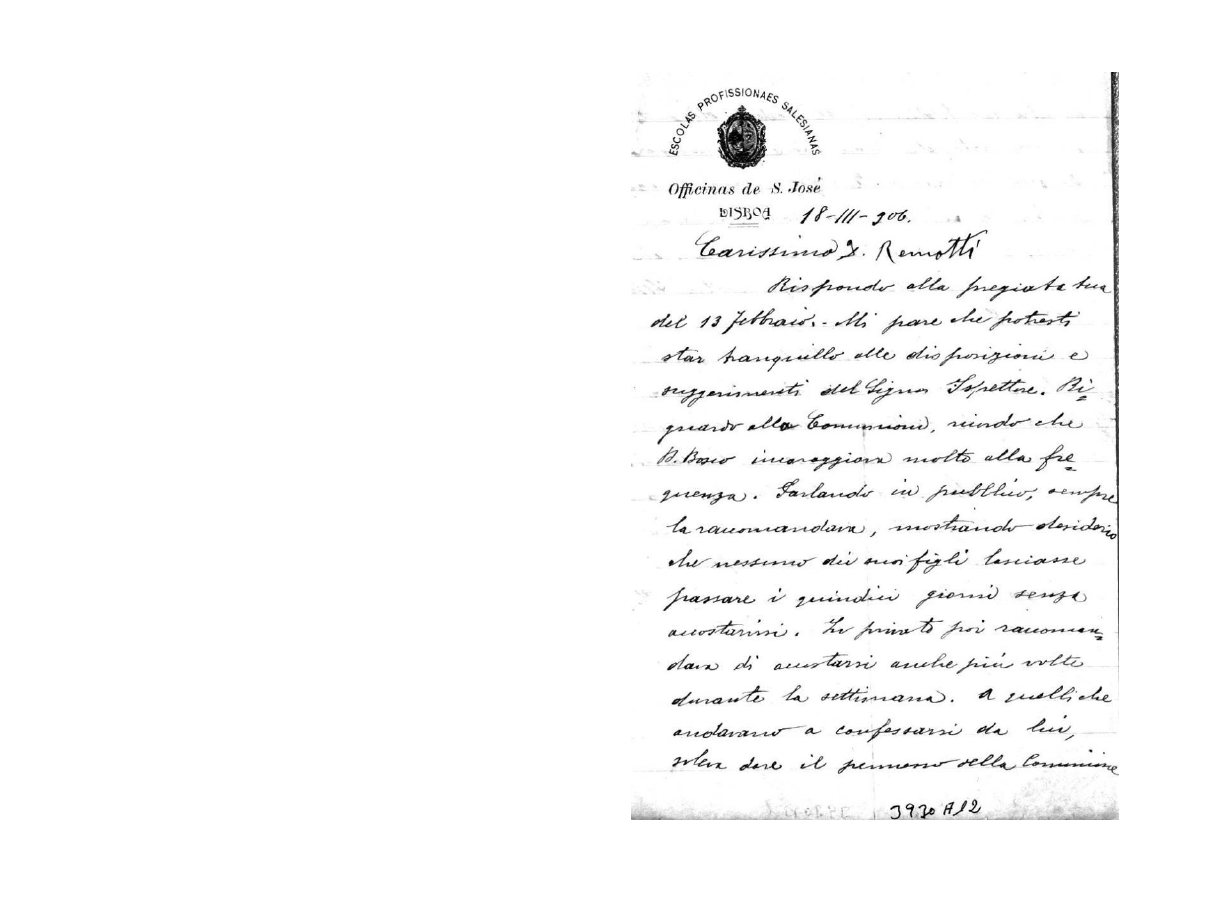 ESCOLAS PROFISSIONAES SALESIANAS
Officinas de S. José
LISBOA 18-III-906.
Carissimo D. Remotti
Rispondo alla pregiata tua
del 13 febbraio. - Mi pare che potresti
star tranquillo alle disposizioni e
suggerimenti del Signor Ispettore. Ri=
guardo alle Comunioni, ricordo che
D. Bosco incoraggiava molto alla fre=
quenza. Parlando in pubblico, sempre
la raccomandava, mostrando desiderio
che nessuno dei suoi figli lasciasse
passare i quindici giorni senza
accostarvisi. In privato poi raccoman=
dava di accostarsi anche più volte
durante la settimana. A quelli che
andavano a confessarsi da lui,
soleva dare il permesso della Comunione
3930 A12